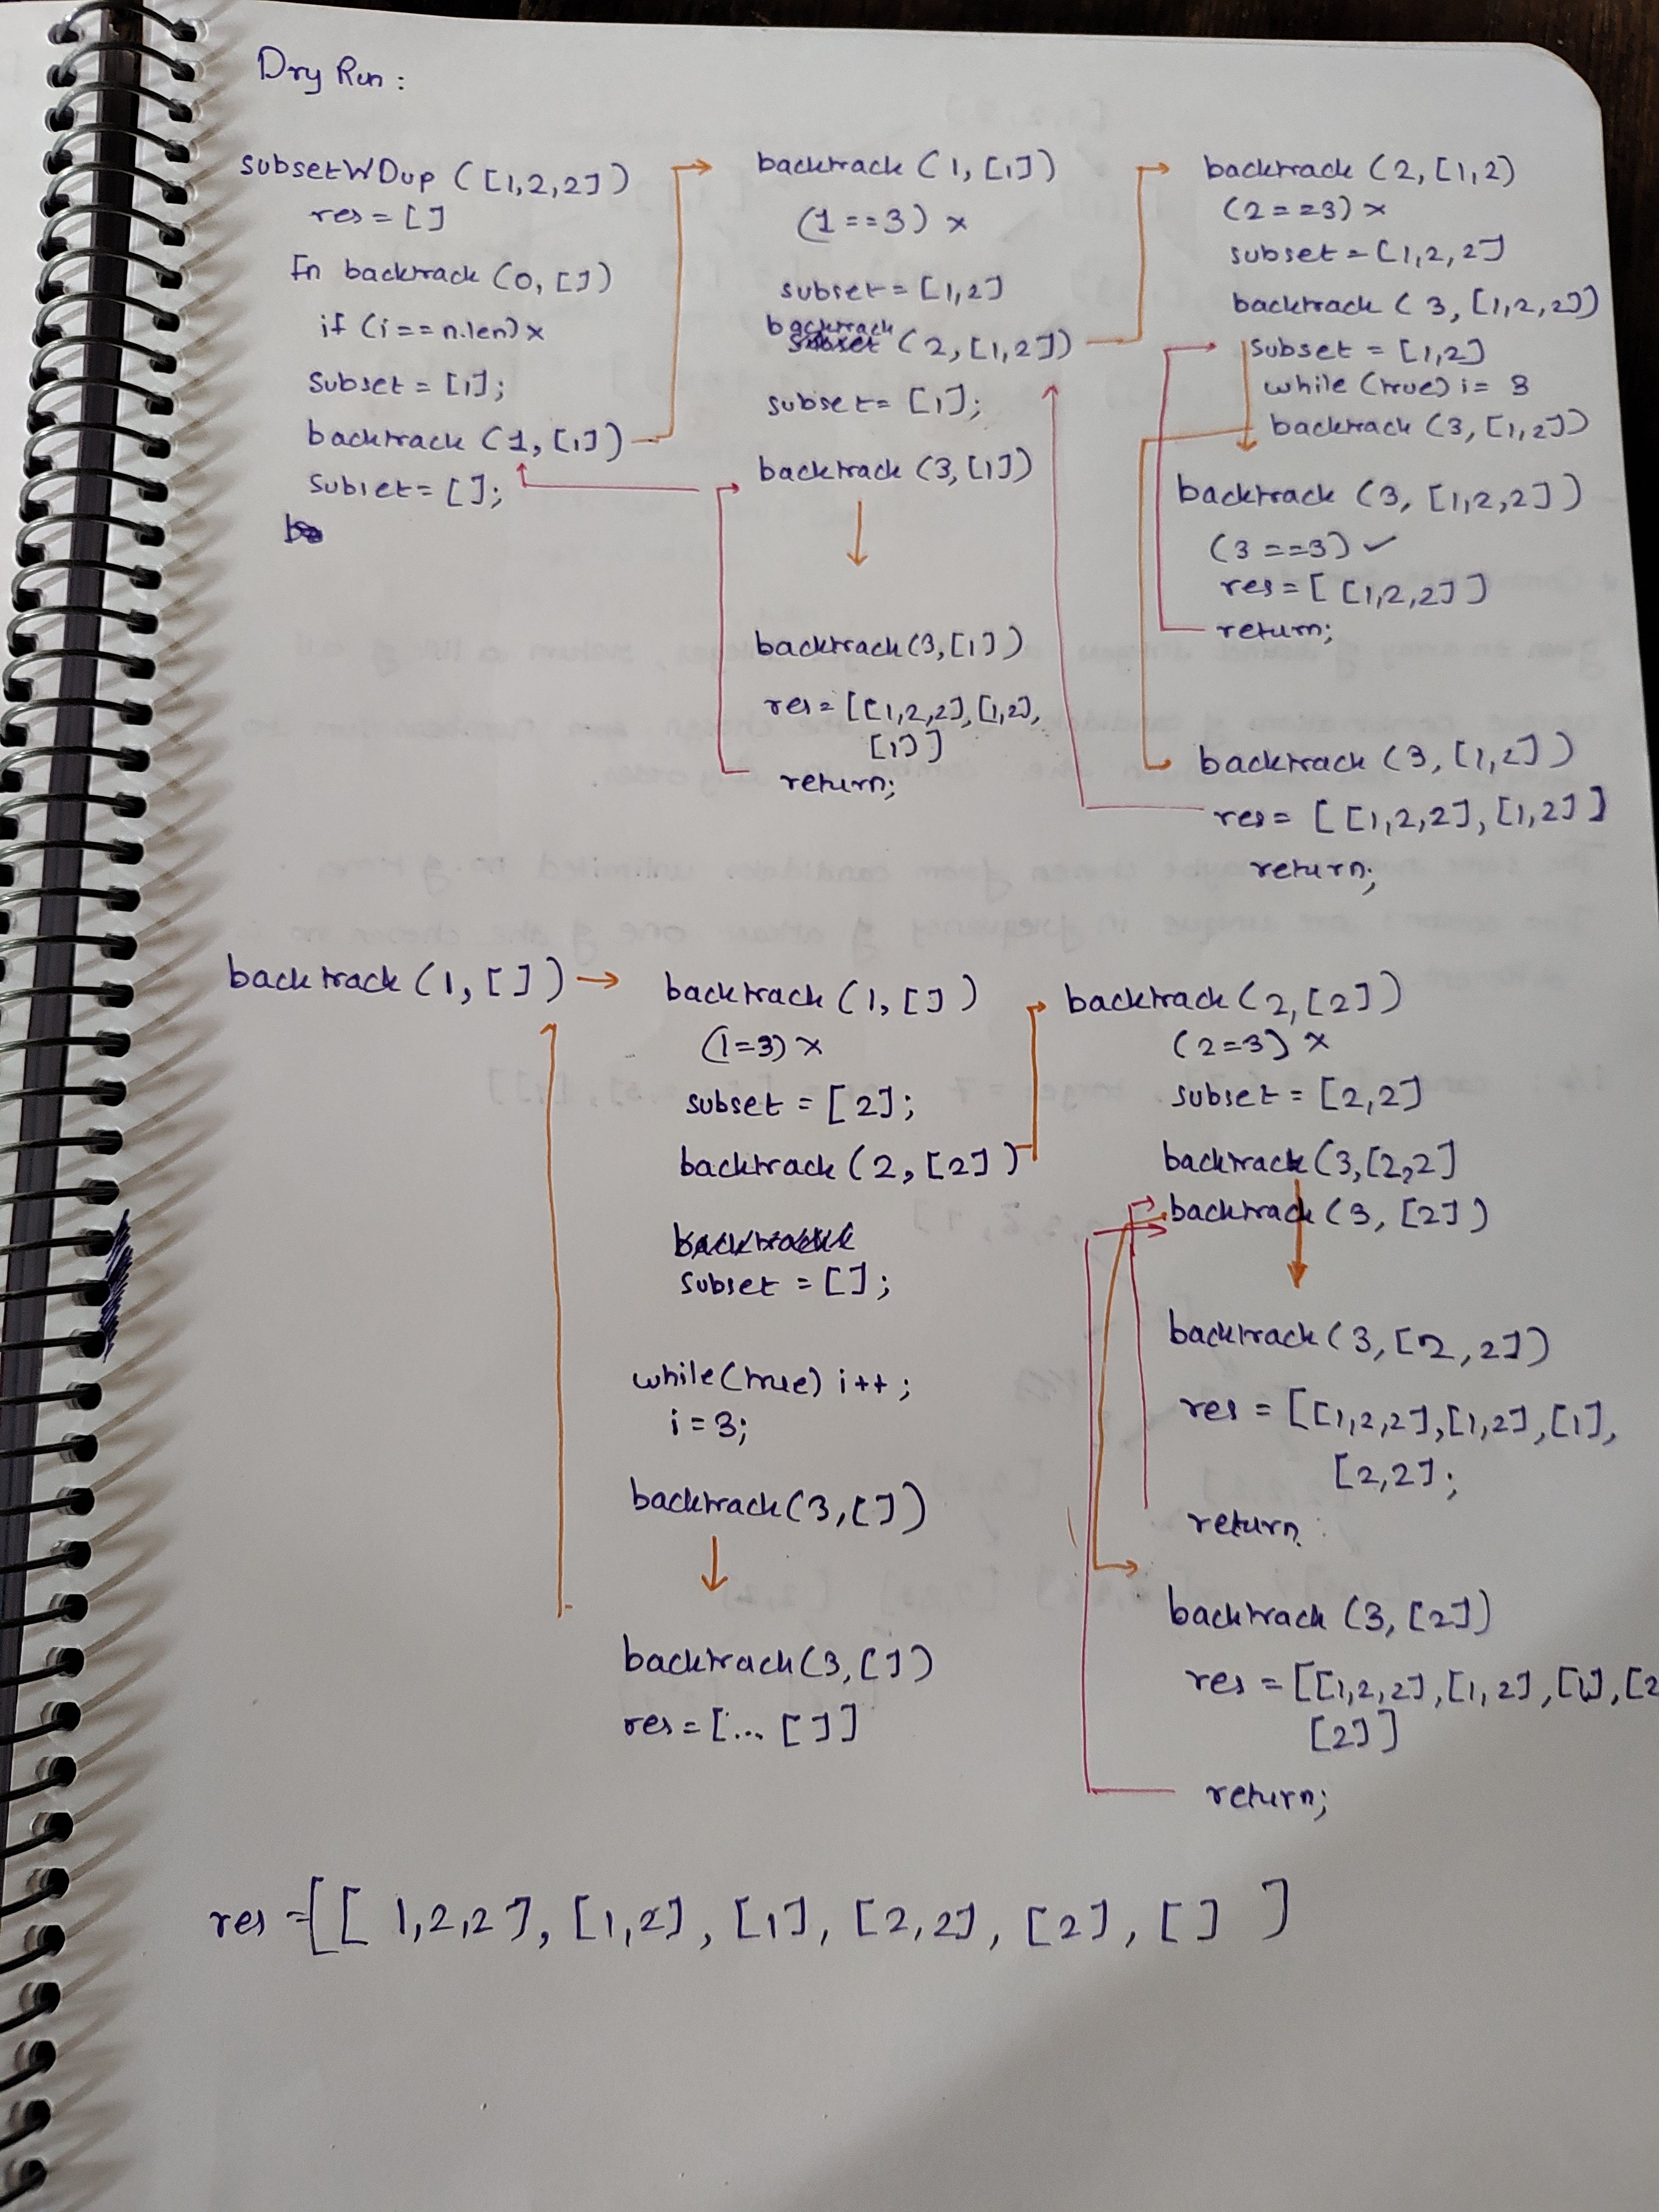 Dry Run :
subsetWDup ([1,2,2])
res = []
In backtrack (0, [])
if (i == n.len) x
Subset = [1];
backtrack (1, [1])
Subset = [];
backtrack (1, [1])
(1 == 3) x
subset = [1,2]
backtrack
(2, [1,2])
subset = [1];
backtrack (3, [1])
backtrack (3, [1])
res = [[1,2,2], [1,2],
[1]]
return;
backtrack (2, [1,2)
(2 == 3) x
subset = [1,2,2]
backtrack (3, [1,2,2])
subset = [1,2]
while (true) i = 3
backtrack (3, [1,2])
backtrack (3, [1,2,2])
(3 == 3) ✓
res = [ [1,2,2] ]
return;
backtrack (3, [1,2])
res = [ [1,2,2], [1,2] ]
return;
backtrack (1, []) →
backtrack (1, [])
(1=3) x
subset = [2];
backtrack (2, [2])
subset = [];
while(true) i++;
i = 3;
backtrack (3, [])
backtrack (3, [])
res = [... []]
backtrack (2, [2])
(2=3) x
subset = [2,2]
backtrack (3, [2,2]
backtrack (3, [2])
backtrack (3, [2,2])
res = [[1,2,2], [1,2], [1],
[2,2];
return;
backtrack (3, [2])
res = [[1,2,2], [1,2], [1], [2
[2]]
return;
res = [[ 1,2,2], [1,2], [1], [2,2], [2], [] ]